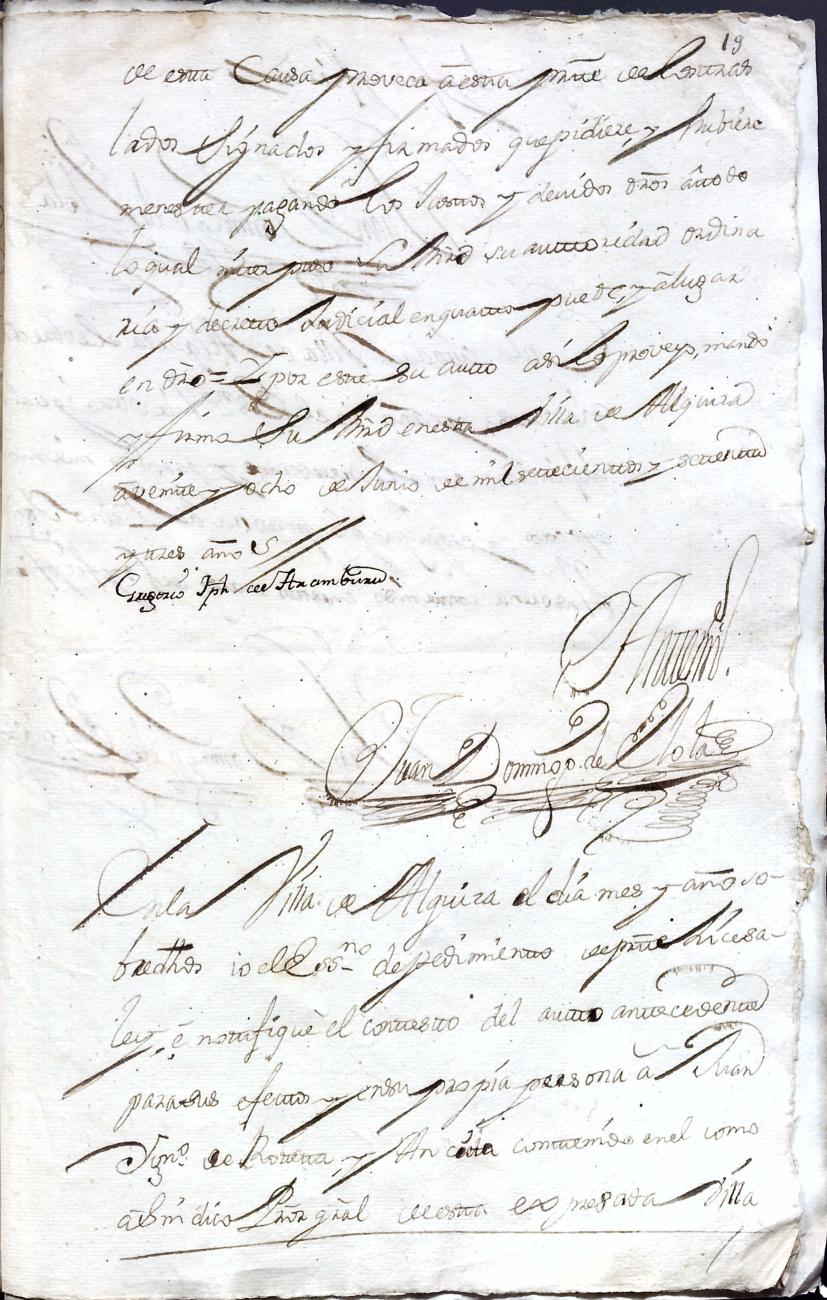 19
de esta Causa provea â esta prte de los tras
lados Signados y firmados que pidiere, y hubiere
menester pagando los Justos y devidos dros âtodo
lo qual interpuso Su Mrd su auttoridad ordina
ria y decreto Judicial en quanto puede, y â lugar
en dro= Y por este su autto asi lo proveyo, mando
y firmo Su Mrd en esta Villa de Alquiza
â veinte y ocho de Junio de mil setecientos y setenta
y tres años
Gregorio Jph de Aramburu
Ante mi
Juan Domingo de
En la Villa de Alquiza el dia mes y año so-
bredhos io el Essno de pedimiento de prte hice sa-
ley, é notifiquè el contesto del autto antecedente
para sus efectos y en su propia persona â Juan
de Roteta, y Ancieta contenido en el como
â Sindico Pror gral de esta expresada Villa